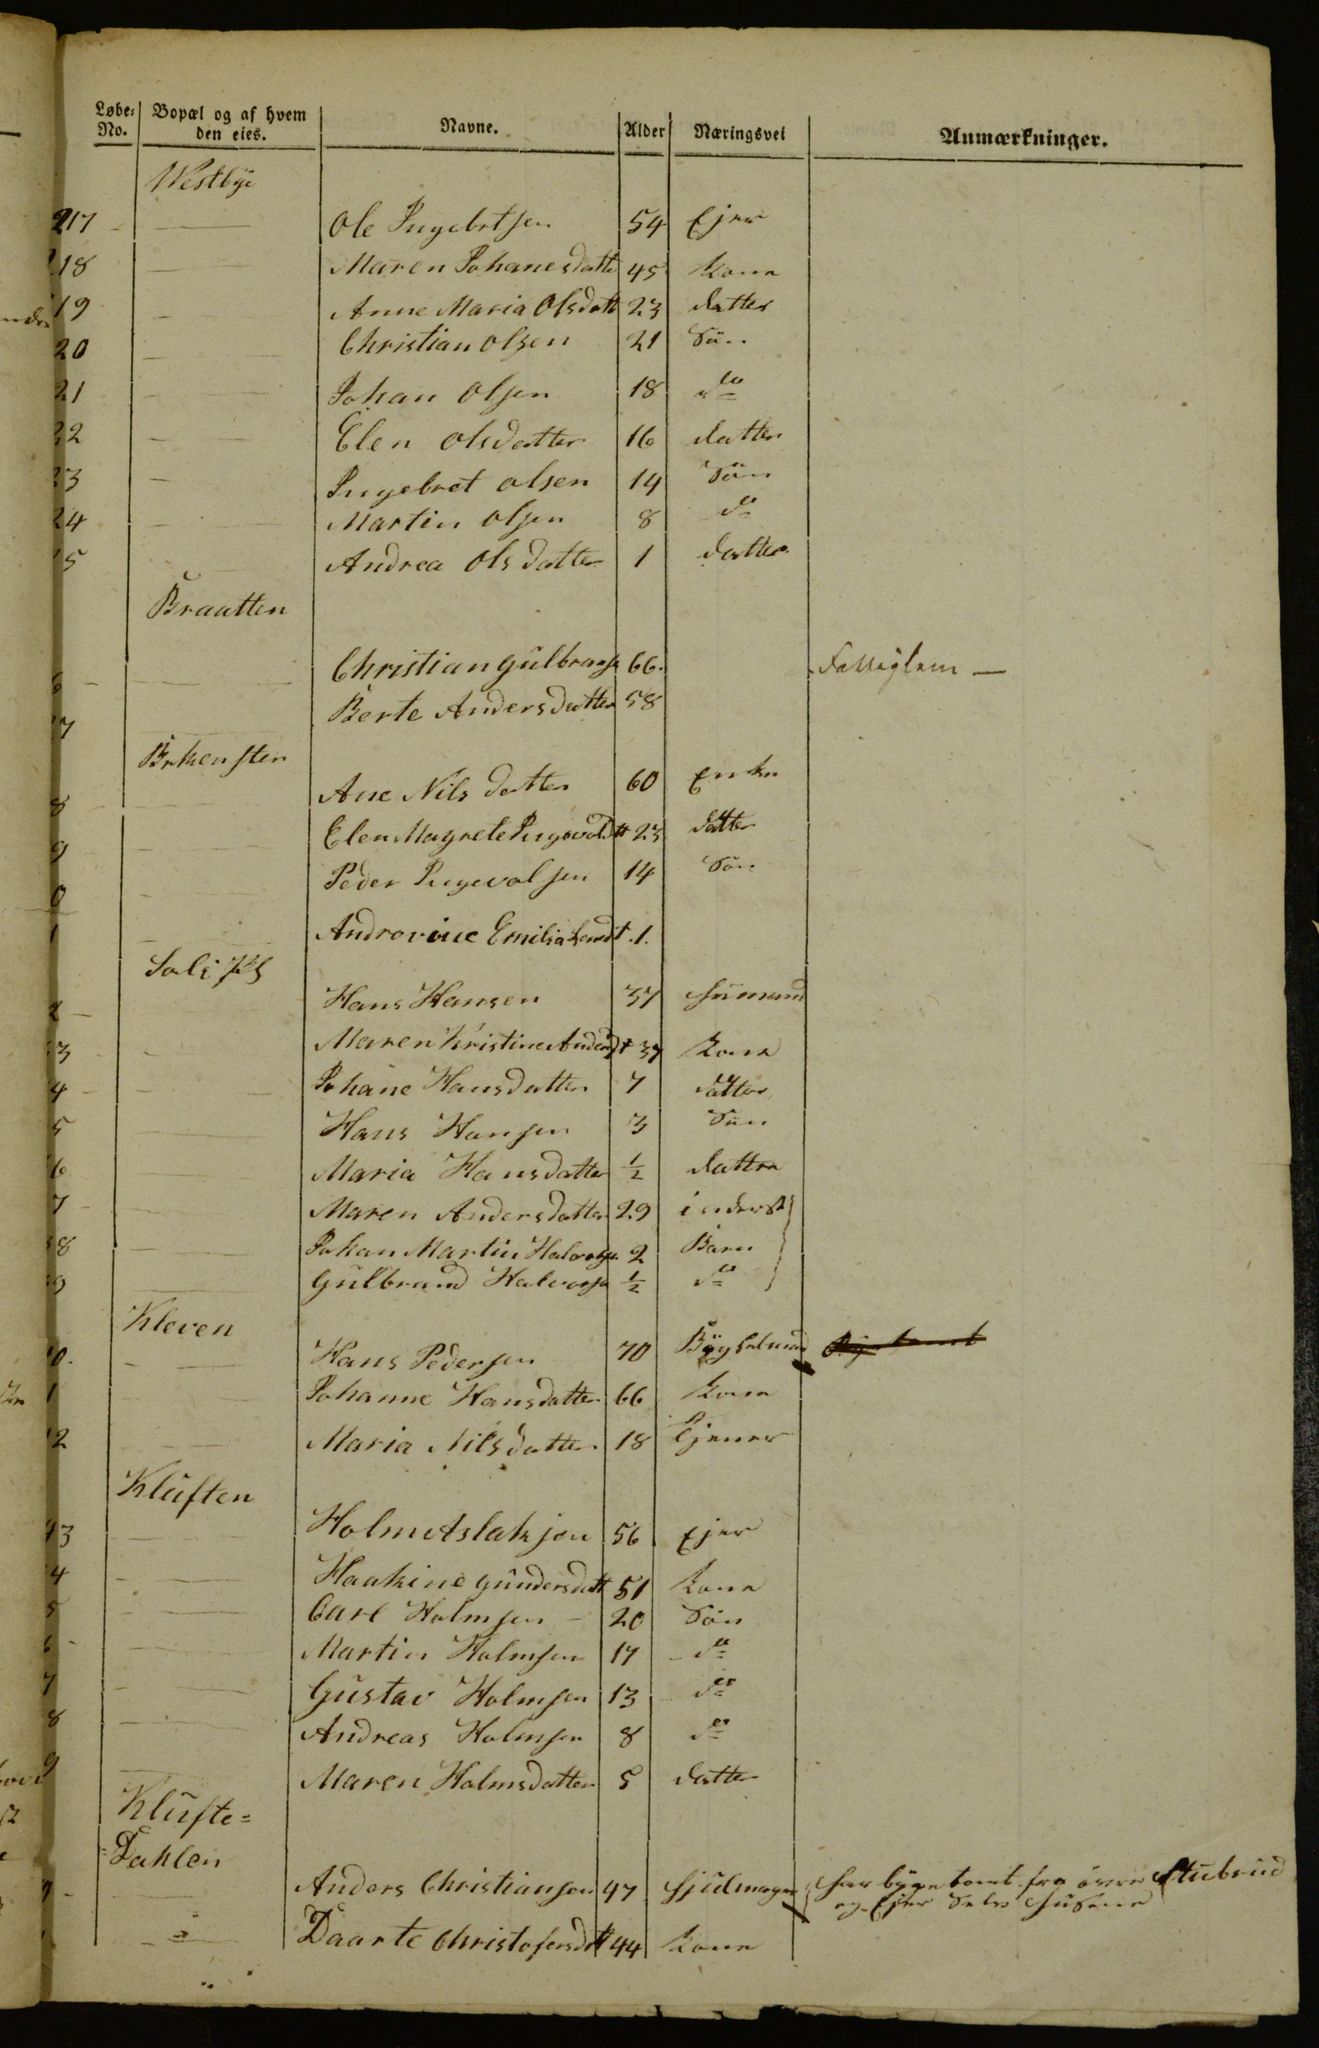 Løbe- No. Bopæl og af hvem den eies. Navne. Alder Næringsvei Anmærkninger.
Westbye
217 Ole Ingebretsen 54 Ejer
18 Maren Johanesdatte 45 Kone
19 Anne Maria Olsdatt 23 datter
20 Christian Olsen 21 Sön
21 Johan Olsen 18 do
22 Elen Olsdatter 16 datter
23 Ingebret Olsen 14 Sön
24 Martin Olsen 8 do
5 Andrea Olsdatter 1 datter
Braatten
6 Christian Gulbrans 66. Fattiglem
7 Berte Andersdatter 58
Birkensten
8 Ane Nilsdatter 60 Enke
9 Elen Magrete Ingevoldtt 23 datter
0 Peder Ingevalsen 14 Sön
1 Androvine Emilia 1.
Soli Pl
2 Hans Hansen 37 Huusmand
3 Maren Kristine Andersdt 37 Kone
4 Johane Hansdatter 7 datter
5 Hans Hansen 3 Sön
6 Maria Hansdatter ½ datter
7 Maren Andersdatter 29 inderst
38 Johan Martin Halvorsn 2 Barn
9 Gulbrand Halvorsn ½ do
Kleven
40. Hans Pedersen 70 Bygselmand
1 Johanne Hansdatter 66 Kone
2 Maria Nilsdatter 18 Tjener
Kluften
43 Holm Aslaksen 56 Ejer
4 Haakine Gundersdatt 51 Kone
5 Carl Holmsen 20 Sön
6 Martin Holmsen 17 do
7 Gustav Holmsen 13 do
8 Andreas Holmsen 8 do
9 Maren Holmsdatter 5 datter
Klufte-
-Dahlen
Anders Christiansen 47 Hjulmager har bygetomt fra øvre Stubrud
og Ejer Selv Husene
Daarte Christofersdtt 44 Kone